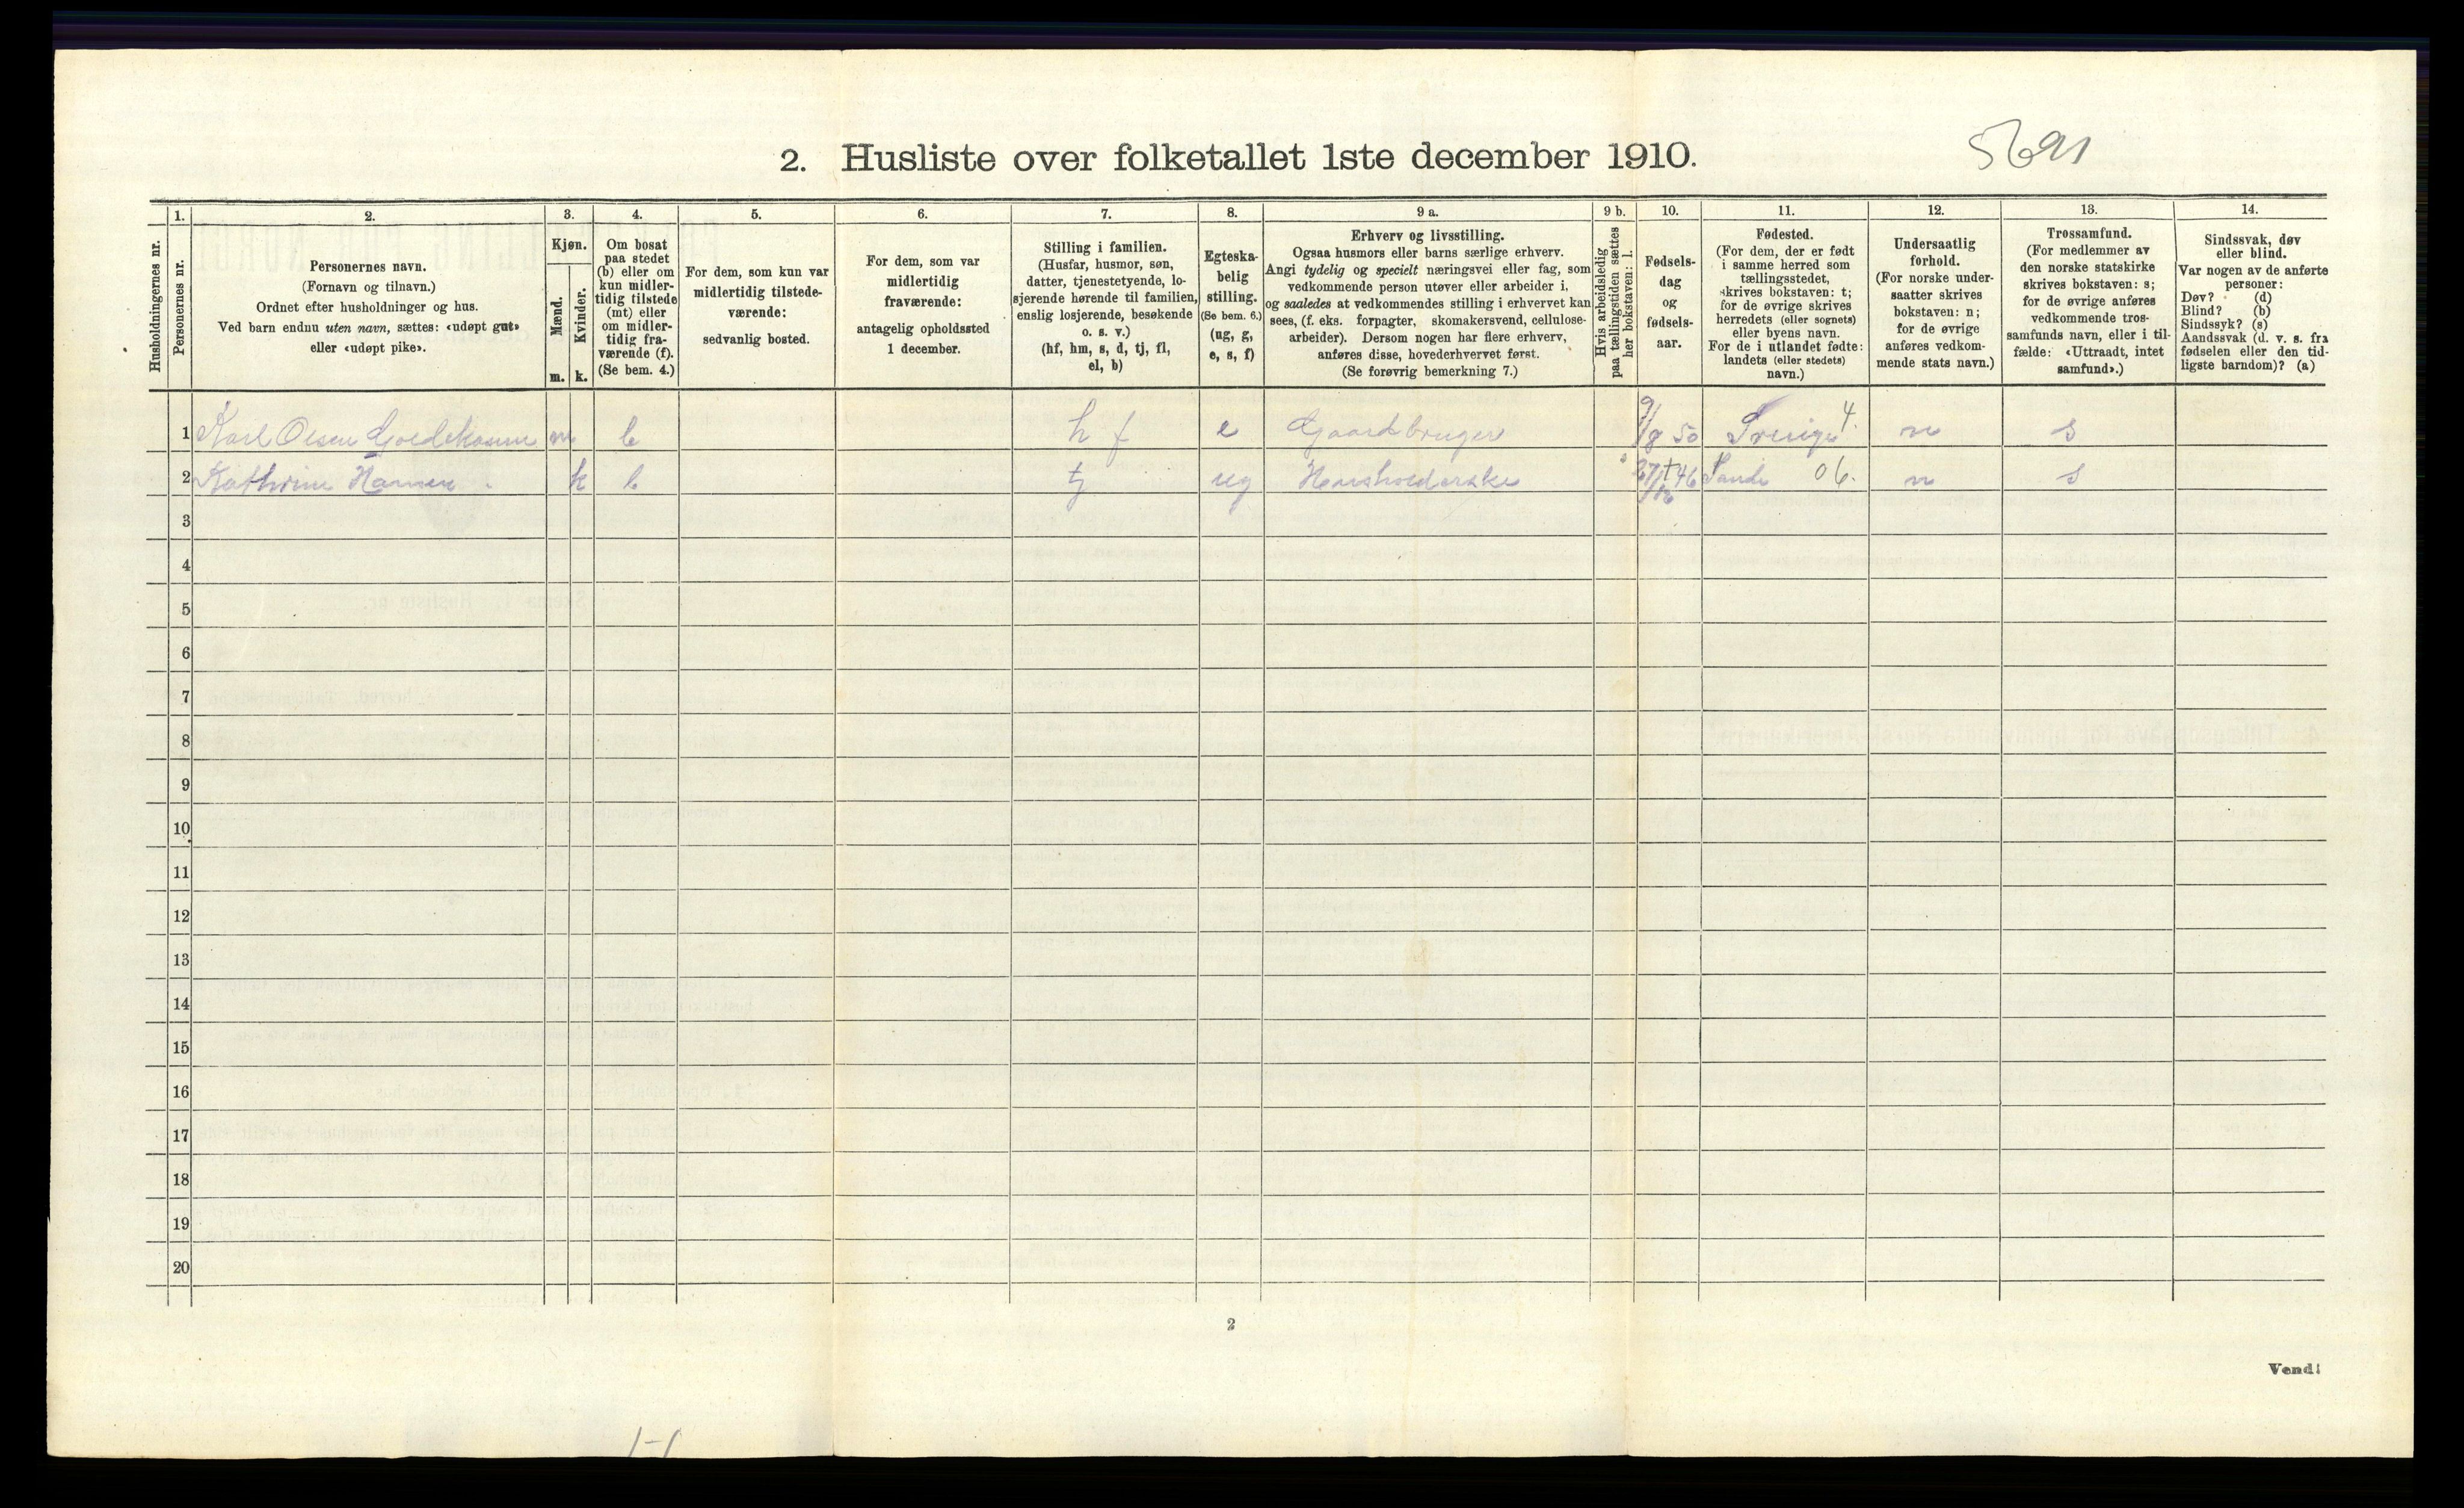 2. Husliste over folketallet 1ste december 1910.
5691
Husholdningernes nr.
1.
Personernes nr.
2.
Personernes navn.
(Fornavn og tilnavn.)
Ordnet efter husholdninger og hus.
Ved barn endnu uten navn, sættes: «udøpt gut»
eller «udøpt pike».
3.
Kjøn.
Mænd.
Kvinder.
m. k.
4.
Om bosat
paa stedet
(b) eller om
kun midler-
tidig tilstede
(mt) eller
om midler-
tidig fra-
værende (f).
(Se bem. 4.)
5.
For dem, som kun var
midlertidig tilstede-
værende:
sedvanlig bosted.
6.
For dem, som var
midlertidig
fraværende:
antagelig opholdssted
1 december.
7.
Stilling i familien.
(Husfar, husmor, søn,
datter, tjenestetyende, lo-
sjerende hørende til familien,
enslig losjerende, besøkende
o. s. v.)
(hf, hm, s, d, tj, fl,
el, b)
8.
Egteska-
belig
stilling.
(Se bem. 6.)
(ug, g,
e, s, f)
9 a.
Erhverv og livsstilling.
Ogsaa husmors eller barns særlige erhverv.
Angi tydelig og specielt næringsvei eller fag, som
vedkommende person utøver eller arbeider i,
og saaledes at vedkommendes stilling i erhvervet kan
sees, (f. eks. forpagter, skomakersvend, cellulose-
arbeider). Dersom nogen har flere erhverv,
anføres disse, hovederhvervet først.
(Se forøvrig bemerkning 7.)
9 b.
Hvis arbeidsledig
paa tællingstiden sættes
her bokstaven: l.
10.
Fødsels-
dag
og
fødsels-
aar.
11.
Fødested.
(For dem, der er født
i samme herred som
tællingsstedet,
skrives bokstaven: t;
for de øvrige skrives
herredets (eller sognets)
eller byens navn.
For de i utlandet fødte:
landets (eller stedets)
navn.)
12.
Undersaatlig
forhold.
(For norske under-
saatter skrives
bokstaven: n;
for de øvrige
anføres vedkom-
mende stats navn.)
13.
Trossamfund.
(For medlemmer av
den norske statskirke
skrives bokstaven: s;
for de øvrige anføres
vedkommende tros-
samfunds navn, eller i til-
fælde: «Uttraadt, intet
samfund».)
14.
Sindssvak, døv
eller blind.
Var nogen av de anførte
personer:
Døv? (d)
Blind? (b)
Sindssyk? (s)
Aandssvak (d. v. s. fra
fødselen eller den tid-
ligste barndom)? (a)
1 Karl Olsen m b h f e Gaardbruger 9/8 50 Sverige 4. n s
2 Kathrine Hansen k b tj ug Husholderske 46 Sande 06. n s
3
4
5
6
7
8
9
10
11
12
13
14
15
16
17
18
19
20
2
Vend!
1-1